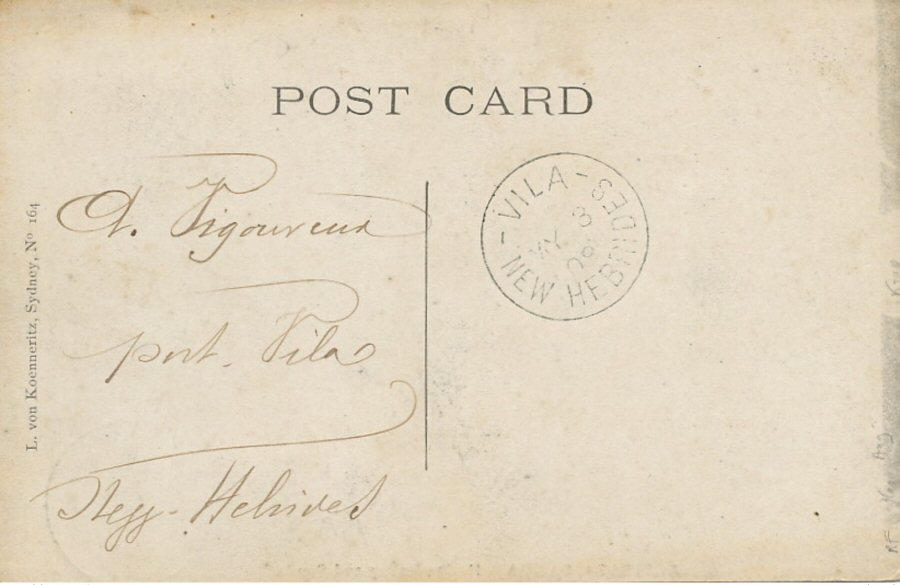 POST CARD
L. von Koenneritz, Sydney, Nº 164
A. Vigoureux
port. Vila
Hebrides
- VILA - NEW HEBRIDES
MY 8
09